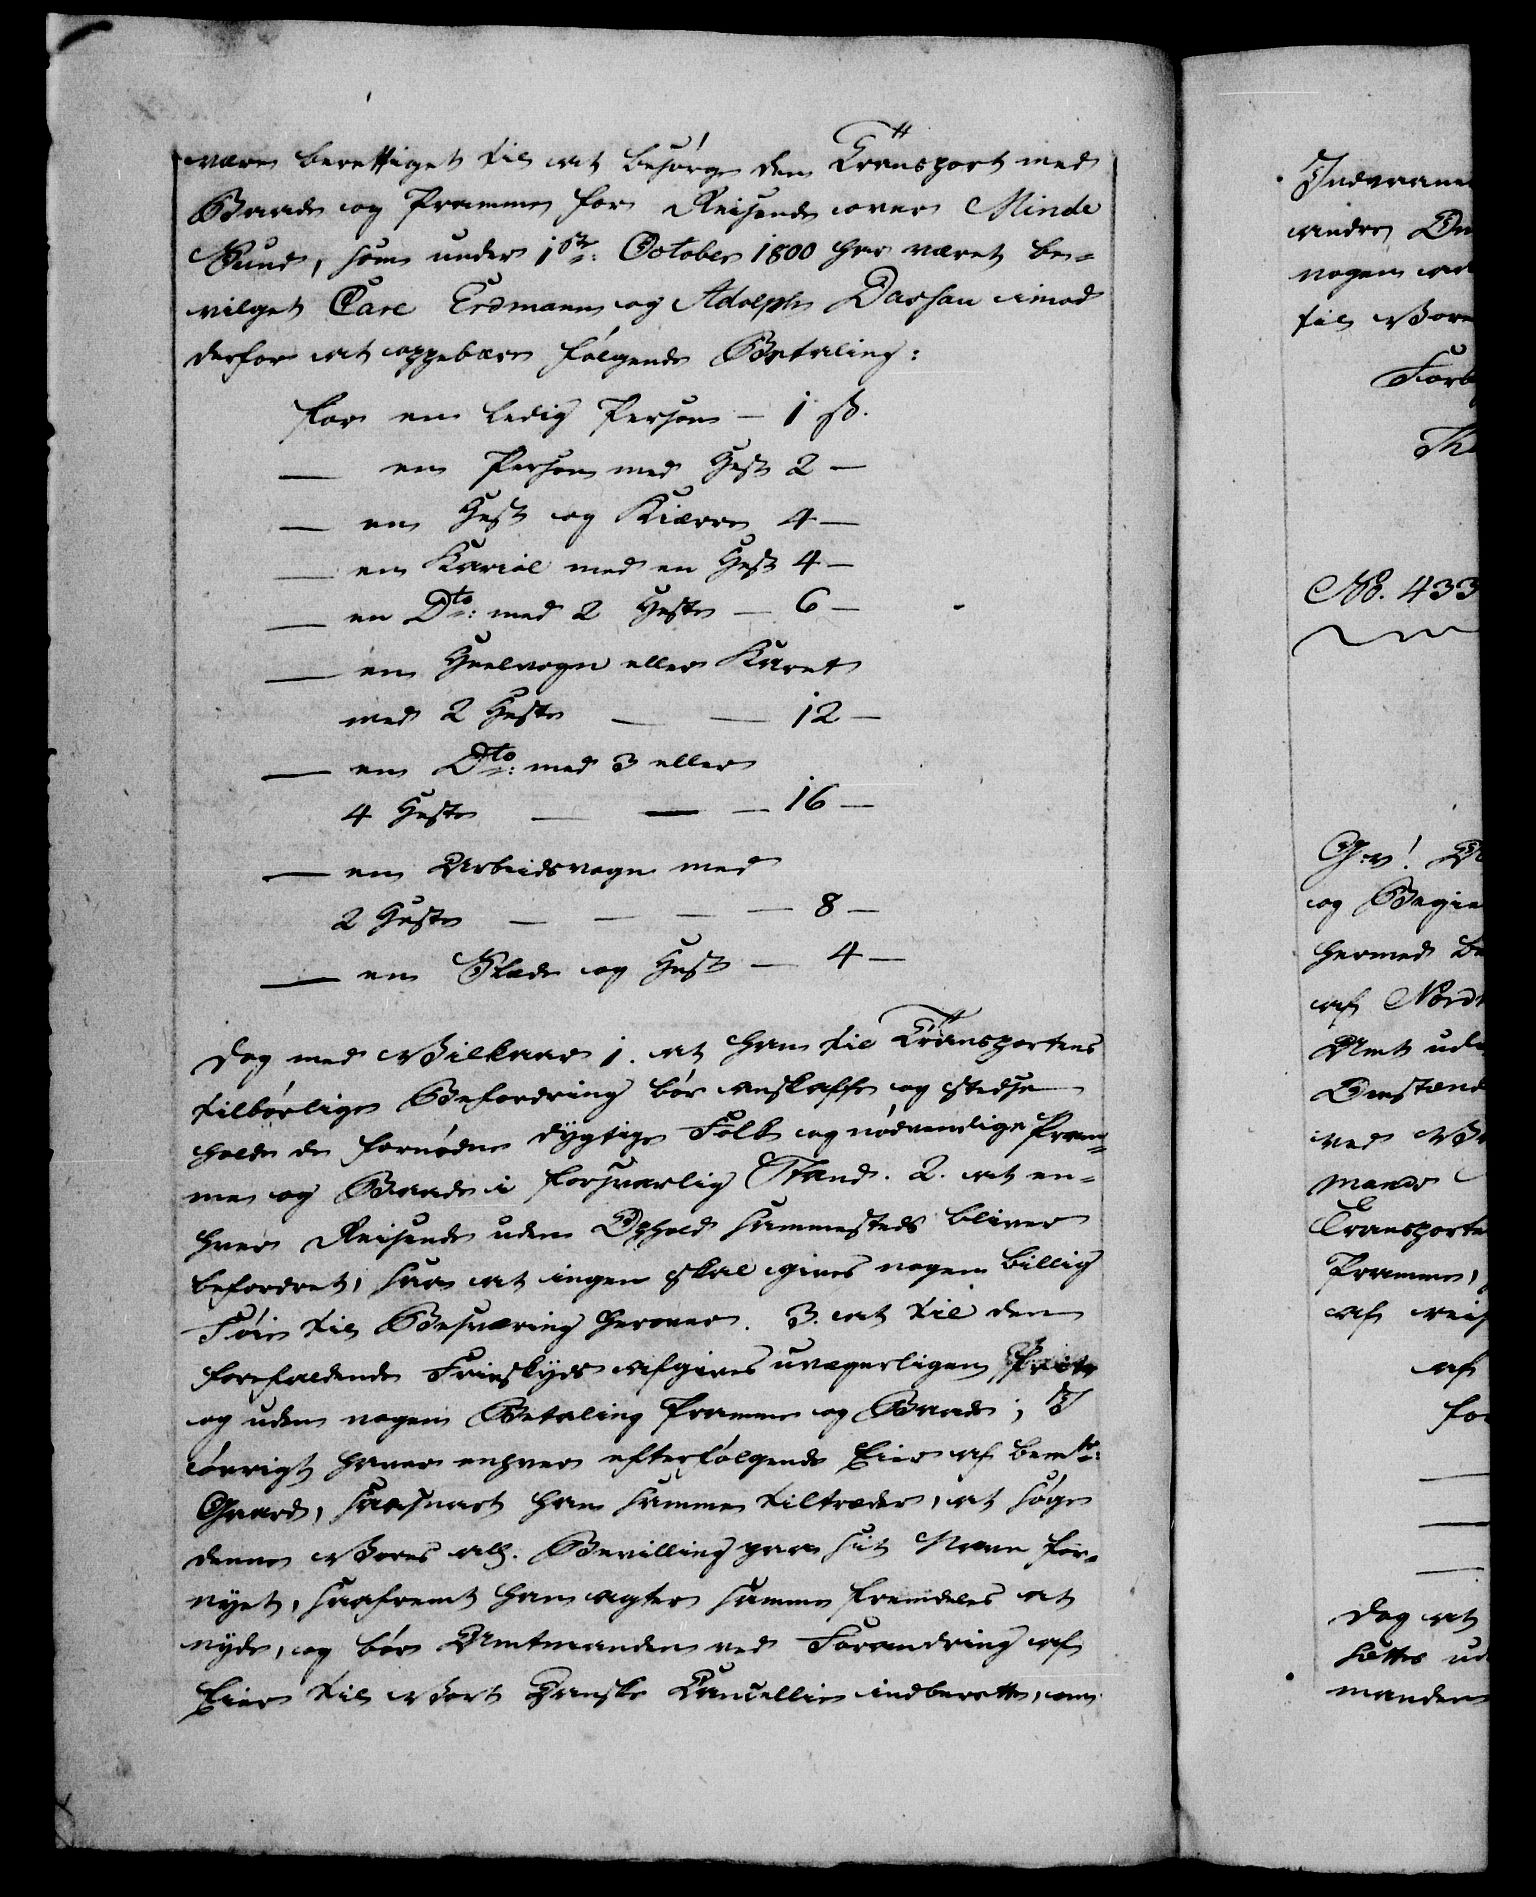 være berettiget til at besørge den Transport med
Baade og Pramme for Reisende over Minde
Sund, som under 1ste October 1800 har været be-
vilget Carl Erdmann og Adolph Dassau imod
derfor at oppebære følgende Betaling:
for en ledig Person — 1 ß.
— en Person med Hest 2 —
— en Hest og Kiærre 4 —
— en Kariol med en Hest 4 —
— en Dto: med 2 Heste — 6 —
— en Heelvogn eller Karet
med 2 Heste — — 12 —
— en Dto: med 3 eller
4 Heste — — — 16 —
— en Arbeidsvogn med
2 Heste — — — — 8 —
— en Slæde og Hest — 4 —
dog med Vilkaar 1. at han til Transportens
tilbørlige Befordring bør anskaffe og stedse
holde de fornødne dygtige Folk og nødvendige Pram-
me og Baade i forsvarlig Stand. 2. at en-
hver Reisende uden Ophold sammesteds bliver
befordret, saa at ingen skal gives nogen billig
Føie til Besværing herover. 3. at til den
forefaldende Friskyds afgives uvægerligen
og uden nogen Betaling Pramme og Baade; I
øvrigt haver enhver efterfølgende Eier af bemte:
Gaard, saasnart han samme tiltræder, at søge
denne Vores all. Bevilling paa sit Navn for-
nyet, saafremt han agter samme fremdeles at
nyde, og bør Amtmanden ved Forandring af
Eier til Vort Danske Cancellie indberette, om
Indvaane
andre
nogen
til Vore
Forb
No. 433
G. v!
og Begie
hermed be
af Nord
Amt ude
Omstænd
ved
mands
Transporte
Pramme,
af reis
af
for
—
—
—
dog at
sættes ud
manden